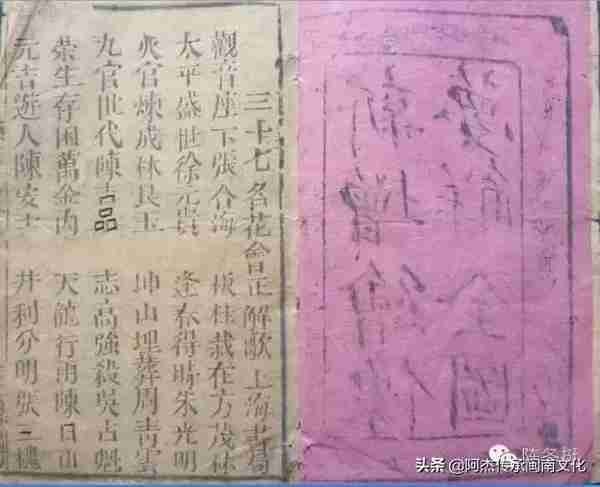 新增繪像
全圖
三十七名花會正解歌 上海書局
觀音座下張合海 板桂栽在方茂林
太平盛世徐元貴 逢春得時朱光明
火官煉成林良玉 坤山埋葬周青雲
九官世代陳吉品 志高強殺吳占魁
榮生存困萬金 天龍行雨陳日山
元吉近人陳安士 井利分明張三槐
头条 @阿杰传承闽南文化